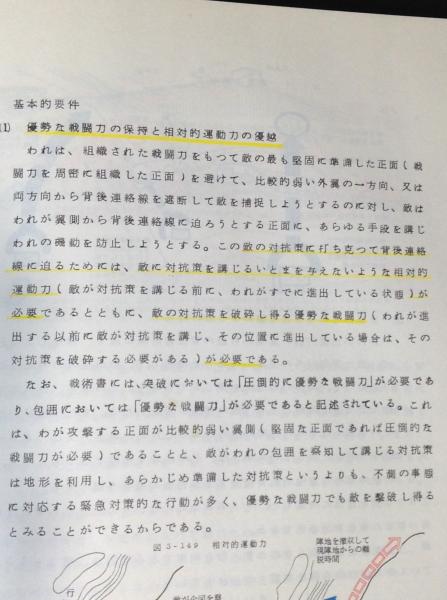 基本的要件
(1) 優勢な戦闘力の保持と相対的運動力の優越
われは、組織された戦闘力をもつて敵の最も堅固に準備した正面(戦
闘力を周密に組織した正面)を避けて、比較的弱い外翼の一方向、又は
両方向から背後連絡線を遮断して敵を捕捉しようとするのに対し、敵は
われが翼側から背後連絡線に迫ろうとする正面に、あらゆる手段を講じ
われの機動を防止しようとする。この敵の対抗策に打ち克つて背後連絡
線に迫るためには、敵に対抗策を講じるいとまを与えないような相対的
運動力(敵が対抗策を講じる前に、われがすでに進出している状態)が
必要であるとともに、敵の対抗策を破砕し得る優勢な戦闘力(われが進
出する以前に敵が対抗策を講じ、その位置に進出している場合は、その
対抗策を破砕する必要がある)が必要である。
なお、戦術書には、突破においては「圧倒的に優勢な戦闘力」が必要であ
り、包囲においては「優勢な戦闘力」が必要であると記述されている。これ
は、わが攻撃する正面が比較的弱い翼側(堅固な正面であれば圧倒的な
戦闘力が必要)であることと、敵がわれの包囲を察知して講じる対抗策
は地形を利用し、あらかじめ準備した対抗策というよりも、不測の事態
に対応する緊急対策的な行動が多く、優勢な戦闘力でも敵を撃破し得る
とみることができるからである。
図3-149 相対的運動力
陣地を撤収して
現陣地からの離
脱時間
行
敵が企図を察